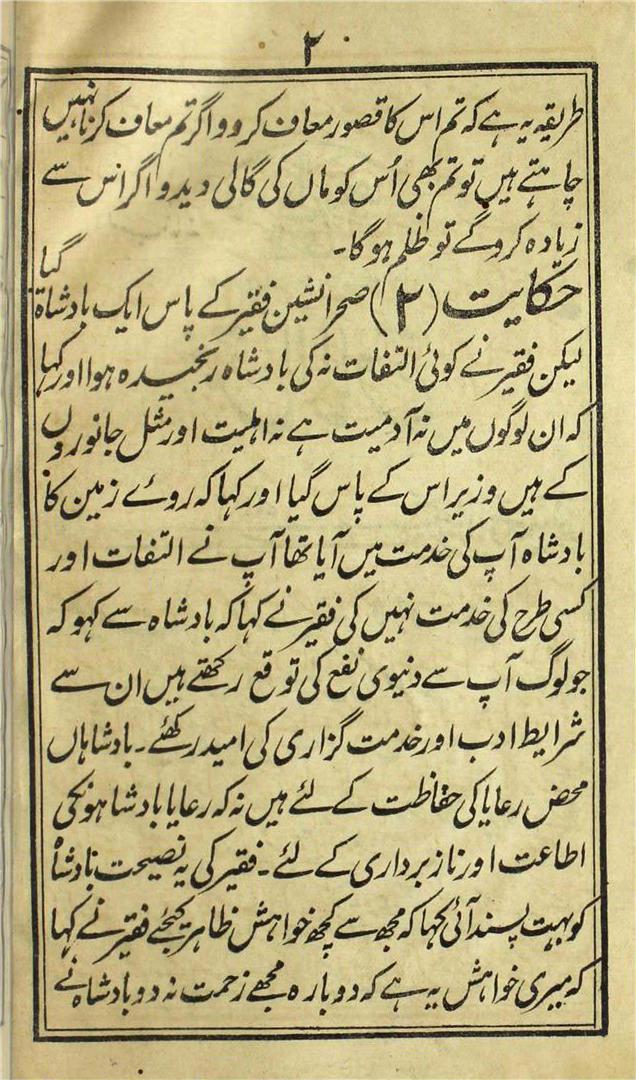 ۲
طریقہ یہ ہے کہ تم اس کا قصور معاف کرو و اگر تم معاف کرنا نہیں
چاہتے ہیں تو تم بھی اُس کو ماں کی گالی دیدو اگر اس سے
زیادہ کروگے تو ظلم ہوگا۔
گیا
حکایت (۲) صحرانشین فقیر کے پاس ایک بادشاہ
لیکن فقیر نے کوئی التفات نہ کی بادشاہ رنجیدہ ہوا اور کہا
کہ ان لوگوں میں نہ آدمیت ہے نہ اہلیت اور مثل جانوروں
کے ہیں وزیر اس کے پاس گیا اور کہا کہ روے زمین کا
بادشاہ آپ کی خدمت میں آیا تھا آپ نے التفات اور
کسی طرح کی خدمت نہیں کی فقیر نے کہا کہ بادشاہ سے کہو کہ
جو لوگ آپ سے دنیوی نفع کی توقع رکھتے ہیں ان سے
شرایط ادب اور خدمت گزاری کی امید رکھئے۔ بادشاہاں
محض رعایا کی حفاظت کے لئے ہیں نہ کہ رعایا بادشاہونکی
اطاعت اور ناز برداری کے لئے۔ فقیر کی یہ نصیحت بادشاہ
کو بہت پسند آئی کہا کہ مجھ سے کچھ خواہش ظاہر کیجئے فقیر نے کہا
کہ میری خواہش یہ ہے کہ دوبارہ مجھے زحمت نہ دو بادشاہ نے